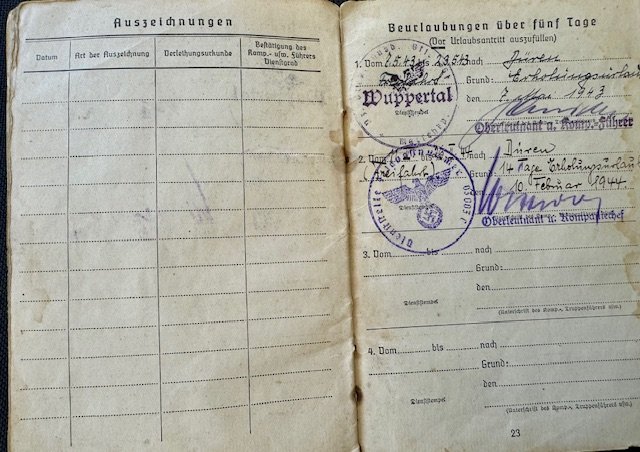 Auszeichnungen
Datum
Art der Auszeichnung
Verleihungsurkunde
Bestätigung des
Komp.- usw. Führers
Dienstgrad
Beurlaubungen über fünf Tage
(Vor Urlaubsantritt auszufüllen)
1. Vom bis 23.5.43 nach Düren
Grund: Erholungsurlaub
Wuppertal
den 7. Mai 1943
Dienststempel
Oberleutnant u. Komp.-Führer
2. Vom bis nach Düren
Freifahrt Grund: 14 Tage Erholungsurlaub
den 10. Februar 1944
Dienststempel
Dienststelle Feldpostnummer
Oberleutnant u. Kompaniechef
3. Vom bis nach
Grund:
den
Dienststempel
(Unterschrift des Komp.-, Truppenführers usw.)
4. Vom bis nach
Grund:
den
Dienststempel
(Unterschrift des Komp.-, Truppenführers usw.)
23